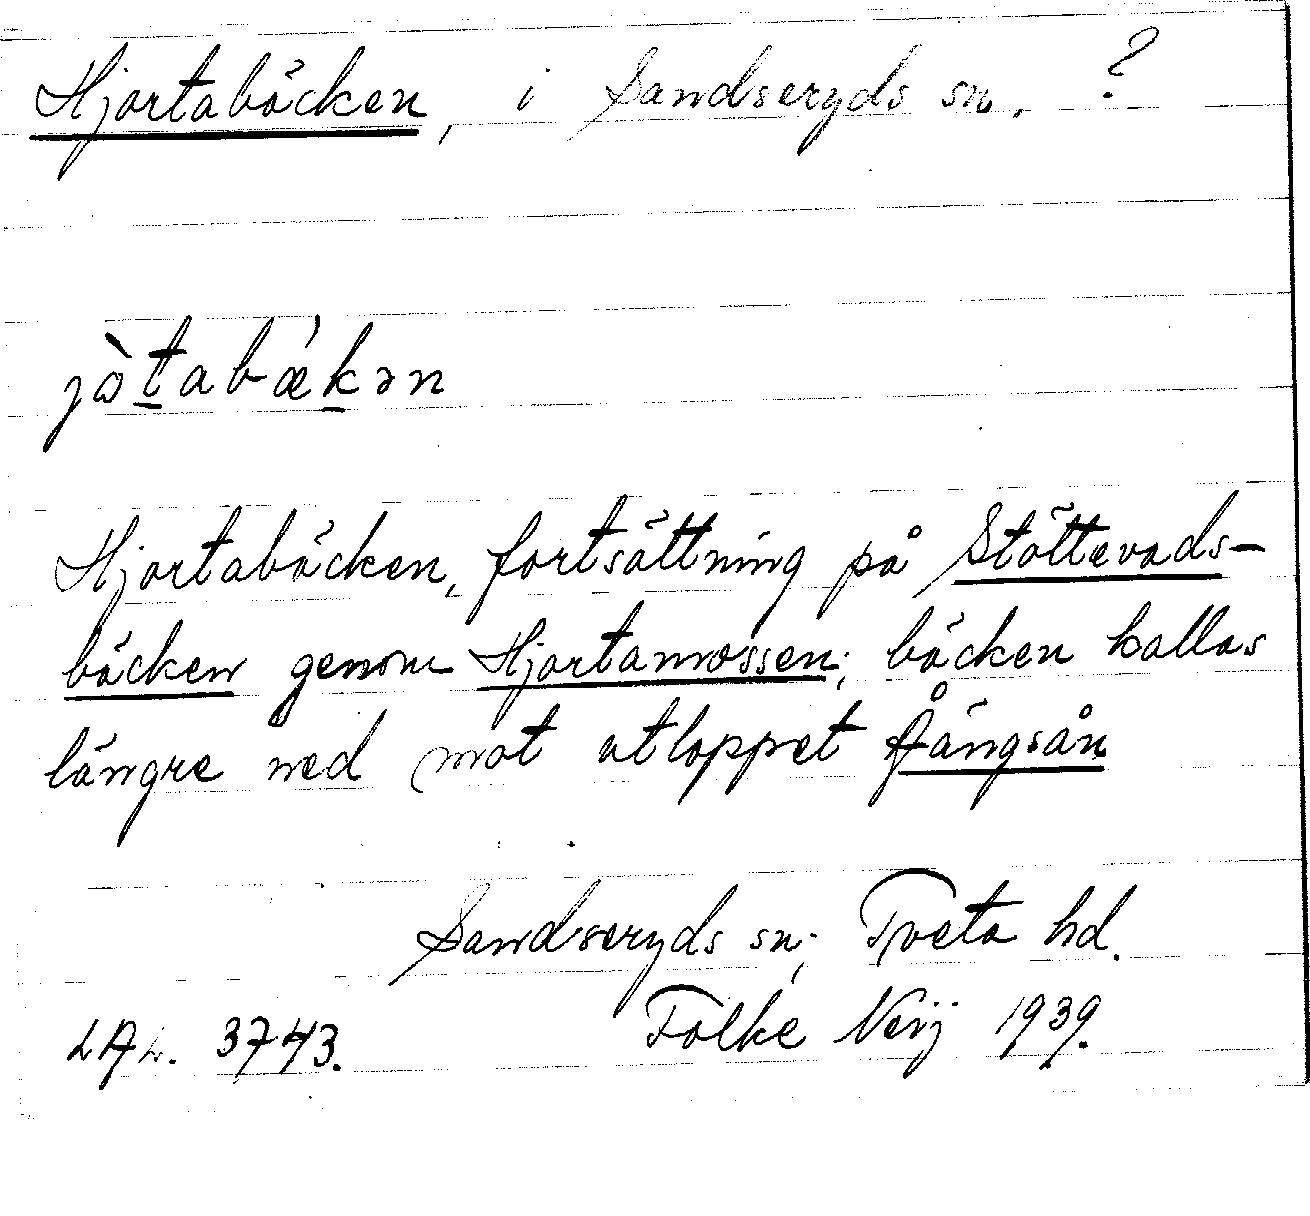 Hjortabäcken, i Sandseryds sn. ?
jòtabǽkən
Hjortabäcken, fortsättning på Stättevads-
bäcken genom Hjortamossen; bäcken kallas
längre ned mot utloppet Gångsån
Sandseryds sn; Tveta hd.
LAL. 3743. Folke Neij 1939.